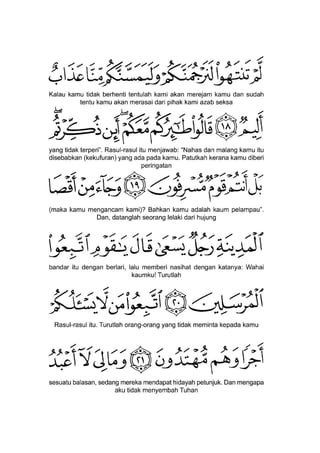 لَّمْ تَنتَهُوا۟ لَنَرْجُمَنَّكُمْ وَلَيَمَسَّنَّكُم مِّنَّا عَذَابٌ
Kalau kamu tidak berhenti tentulah kami akan merejam kamu dan sudah
tentu kamu akan merasai dari pihak kami azab seksa
أَلِيمٌ ١٨ قَالُوا۟ طَٰٓئِرُكُم مَّعَكُمْ ۖ أَئِن ذُكِّرْتُم ۚ
yang tidak terperi”. Rasul-rasul itu menjawab: "Nahas dan malang kamu itu
disebabkan (kekufuran) yang ada pada kamu. Patutkah kerana kamu diberi
peringatan
بَلْ أَنتُمْ قَوْمٌ مُّسْرِفُونَ ١٩ وَجَآءَ مِنْ أَقْصَا
(maka kamu mengancam kami)? Bahkan kamu adalah kaum pelampau”.
Dan, datanglah seorang lelaki dari hujung
ٱلْمَدِينَةِ رَجُلٌ يَسْعَىٰ قَالَ يَٰقَوْمِ ٱتَّبِعُوا۟
bandar itu dengan berlari, lalu memberi nasihat dengan katanya: Wahai
kaumku! Turutlah
ٱلْمُرْسَلِينَ ٢٠ ٱتَّبِعُوا۟ مَن لَّا يَسْـَٔلُكُمْ
Rasul-rasul itu. Turutlah orang-orang yang tidak meminta kepada kamu
أَجْرًا وَهُم مُّهْتَدُونَ ٢١ وَمَا لِىَ لَآ أَعْبُدُ
sesuatu balasan, sedang mereka mendapat hidayah petunjuk. Dan mengapa
aku tidak menyembah Tuhan